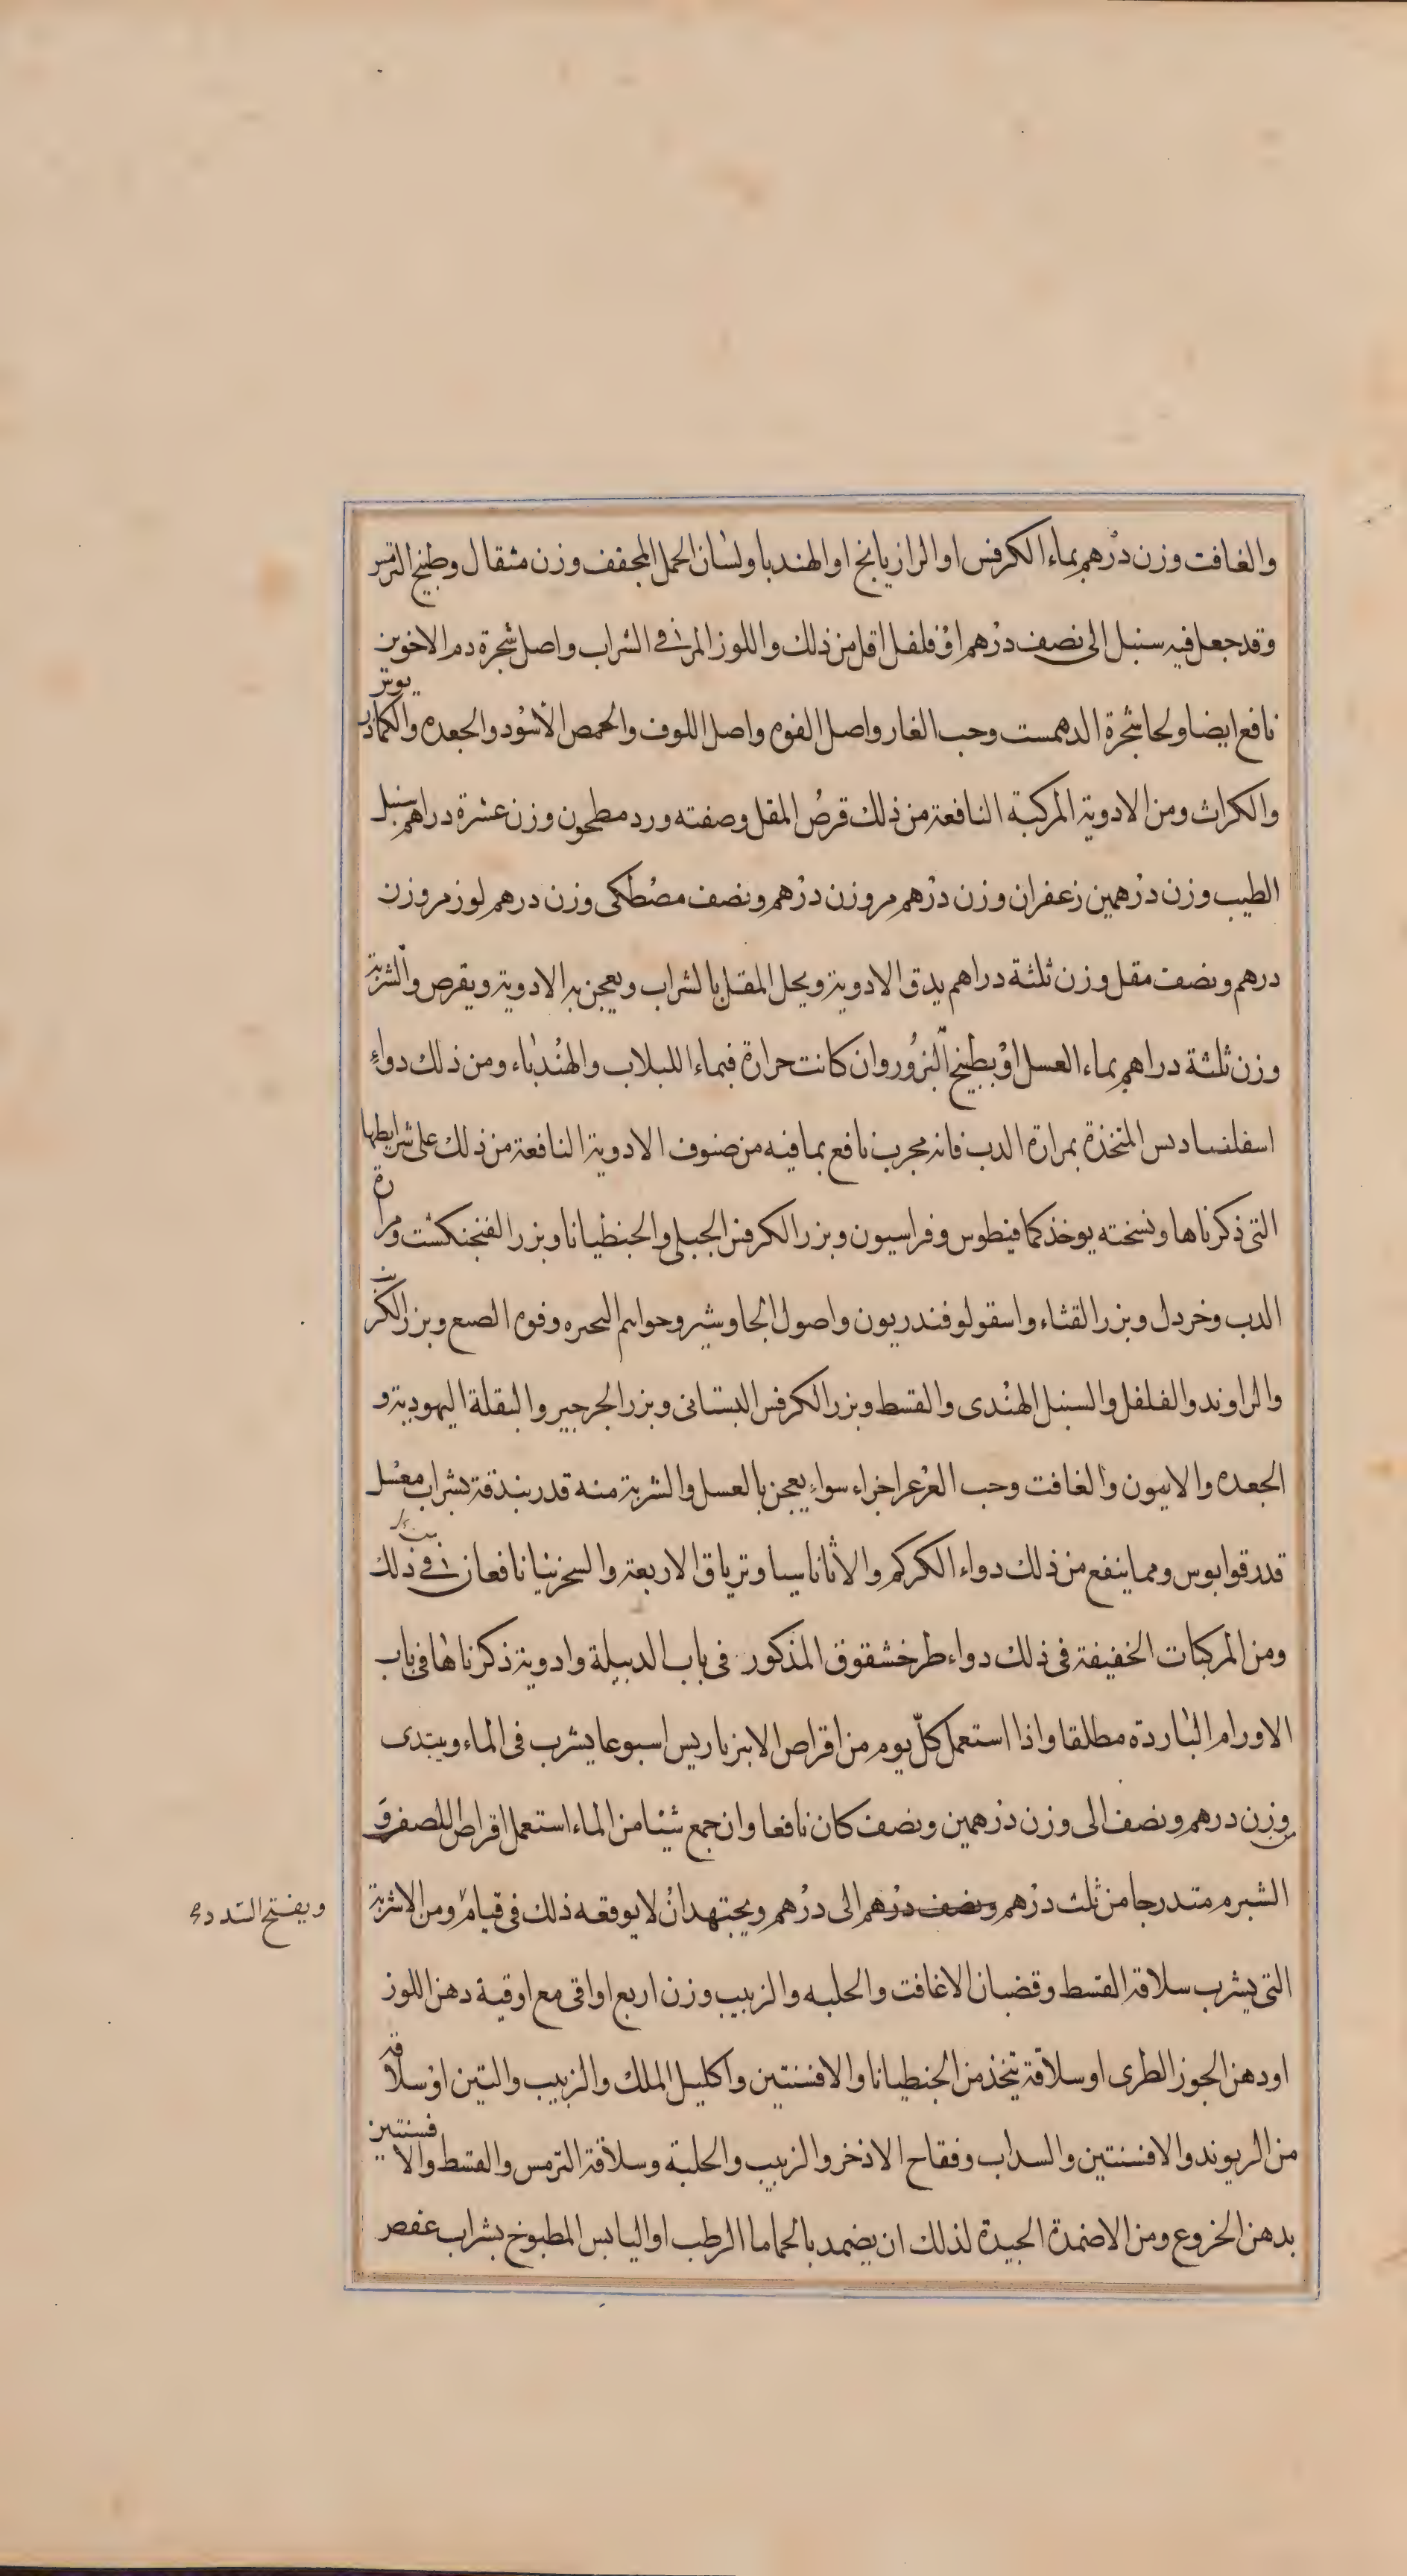 والغافت وزن درهم بماء الكرفس او الرازيانج او الهندبا ولسان الحمل المجفف وزن مثقال وطبيخ الترمس
وقد جعل فيه سنبل الى نصف درهم او فلفل اقل من ذلك واللوز المر في الشراب واصل شجرة دم الاخوين
نافع ايضا ولحا شجرة الدهمست وحب الغار واصل الفوم واصل اللوف والحمص الاسود والجعده والكماذريوس
والكراث ومن الادوية المركبة النافعة من ذلك قرص المقل وصفته ورد مطحون وزن عشرة دراهم سنبل
الطيب وزن درهمين زعفران وزن درهم مر وزن درهم ونصف مصطكى وزن درهم لوز مر وزن
درهم ونصف مقل وزن ثلثة دراهم يدق الادوية ويحل المقل بالشراب ويعجن به الادوية ويقرص والشربة
وزن ثلثة دراهم بماء العسل او بطبيخ البزور وان كانت حرارة فبماء اللبلاب والهندباء ومن ذلك دواء
المتخذة بمرارة الدب فانه مجرب نافع بما فيه من صنوف الادوية النافعة من ذلك على شرايطها
التى ذكرناها ونسخته يوخذ كمافيطوس وفراسيون وبزر الكرفس الجبلى والجنطيانا وبزر الفنجنكشت ومرارة
الدب وخردل وبزر القثاء واسقولوفندريون واصول الجاوشير وفوم وبزر الكرنب
والراوند والفلفل والسنبل الهندى والقسط وبزر الكرفس البستانى وبزر الجرجير والبقلة اليهودية و
الجعده والغافت وحب العرعر اجزاء سواء يعجن بالعسل والشربة منه قدر بندقة بشراب معسل
قدر قوابوس ومما ينفع من ذلك دواء الكركم والاثاناسيا وترياق الاربعة والسجزنيا نافعان في ذلك
ومن المركبات الخفيفة فى ذلك دواء طرخشقوق المذكور فى باب الدبيلة وادوية ذكرناها فى باب
الاورام الباردة مطلقا واذا استعمل كل يوم من اقراص الابزباريس اسبوعا يشرب فى الماء ويبتدى
من وزن درهم ونصف الى وزن درهمين ونصف كان نافعا وان جمع شيئا من الماء استعمل اقراص للصفر و
الشبرم متدرجا من ثلث درهم ونصف درهم الى درهم ويجتهد ان لا يوقعه ذلك فى قيام ومن الاشربة
ويفتح السدد
التى يشرب سلاقة القسط وقضبان الاغافت والحلبه والزبيب وزن اربع اواقى مع اوقية دهن اللوز
او دهن الجوز الطرى او سلاقة تتخذ من الجنطيانا والافسنتين واكليل الملك والزبيب والتين او سلاقة
من الريوند والافسنتين والسداب وفقاح الاذخر والزبيب والحلبة وسلاقة الترمس والقسط والافسنتين
بدهن الخروع ومن الاضمدة الجيدة لذلك ان يضمد بالحماما الرطب او اليابس المطبوخ بشراب عفص